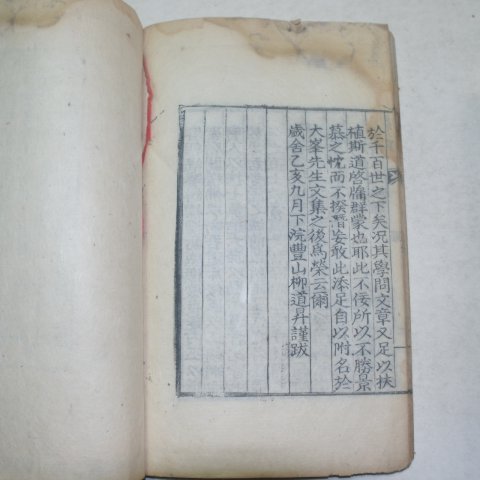 於千百世之下矣況其學問文章又足以扶
植斯道啓牖群蒙也耶此不佞所以不勝景
慕之忱而不揆僭妄敢此添足自以附名於
大峯先生文集之後爲榮云爾
歲舍乙亥九月下浣豐山柳道昇謹跋